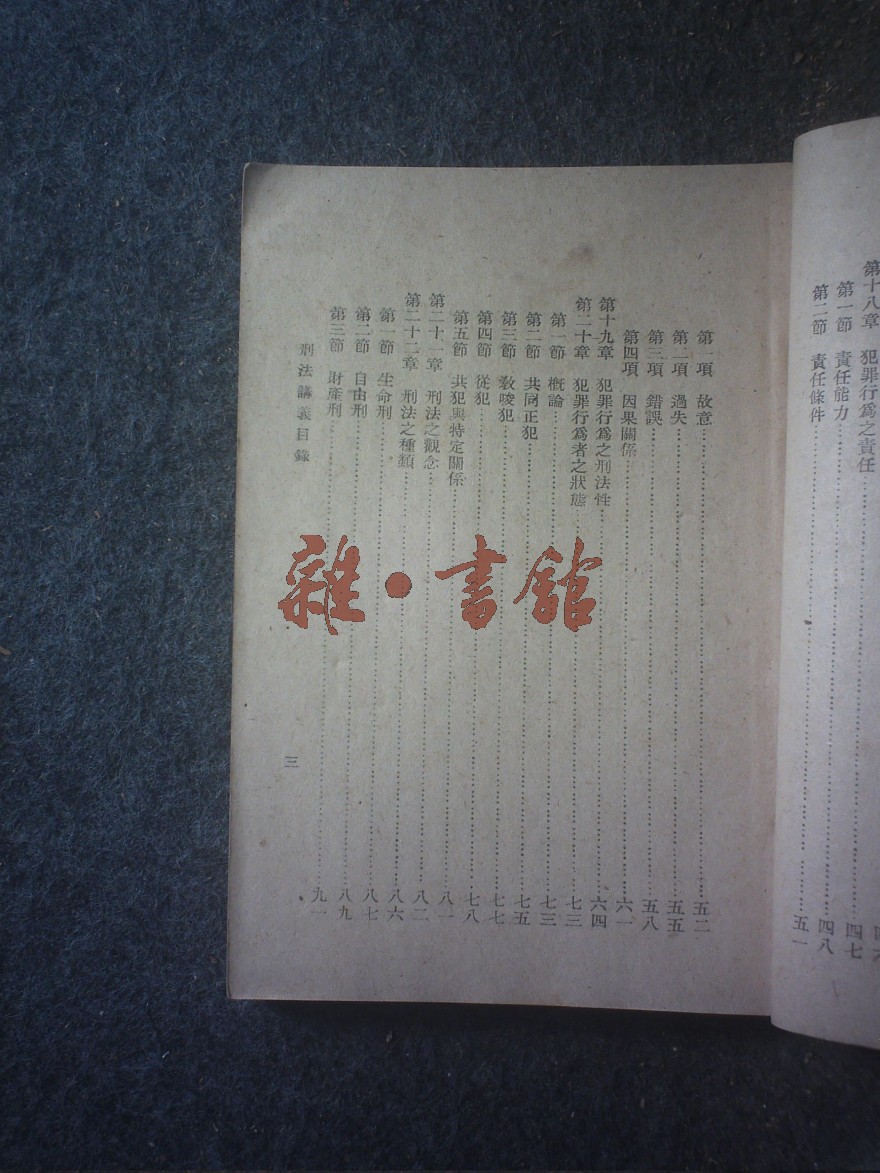 第十八章 犯罪行爲之責任……四七
第一節 責任能力……四八
第二節 責任條件……五一
第一項 故意……五二
第二項 過失……五五
第三項 錯誤……五八
第四項 因果關係……六一
第十九章 犯罪行爲之刑法性……六四
第二十章 犯罪行爲者之狀態……七三
第一節 概論……七三
第二節 共同正犯……七五
第三節 教唆犯……七七
第四節 從犯……七八
第五節 共犯與特定關係……八一
第二十一章 刑法之觀念……八二
第二十二章 刑法之種類……八六
第一節 生命刑……八七
第二節 自由刑……八九
第三節 財產刑……九一
刑法講義目錄
三
雜·書館